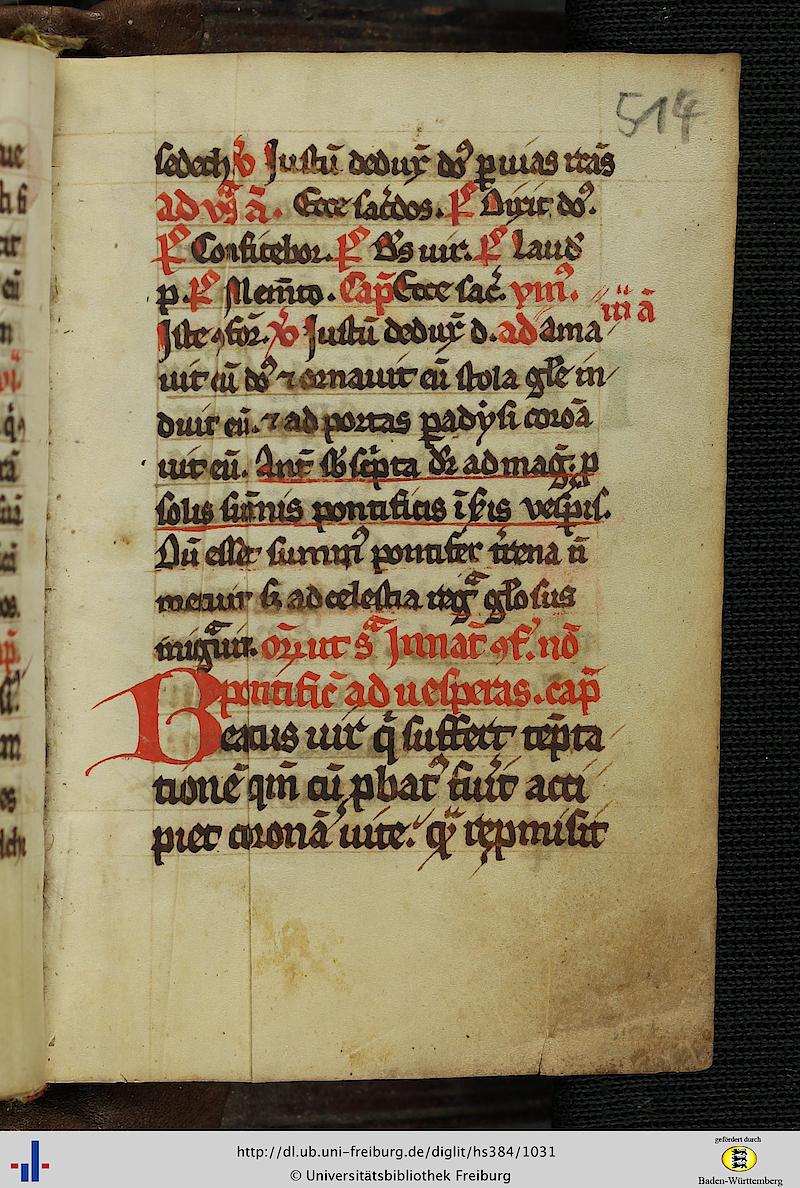 514
sedech v̾ Iustū dedux̄ dn̄s p̱ uias rc̄as
ad vꝑ̄as ā. Ecce sac̄dos. p̄s Dixit dn̄s.
p̄s Confitebor. p̄s B̄s uir. p̄s Laud̄
p. p̄s Mem̄to. Cap̄ Ecce sac̄. ymꝰ.
iii ā
Iste ꝯfor̄. v̾ Iustū dedux̄ d. ad ama
uit eū dn̄s ⁊ ornauit eū stola glē in
duit eū. ⁊ ad portas ꝑadysi coroā
uit eū. Ant̄ sb̄scpta dr̄ ad maḡ. p
solis sūmis pontificis ī ip̄is vesꝑis.
Dū esset summꝰ pontifex t̄rena n̄
metuit s; ad celestia regͣ glo͛sus
migͣuit. 
pontific̄ ad uesperas. cap̄
Beatus uir qͥ suffert tēpta
tionē qm̄ cū ꝓbatꝰ fuīt acci
piet coronā uite. qͣ repmisit
http://dl.ub.uni-freiburg.de/diglit/hs384/1031
© Universitätsbibliothek Freiburg
gefördert durch
Baden-Württemberg